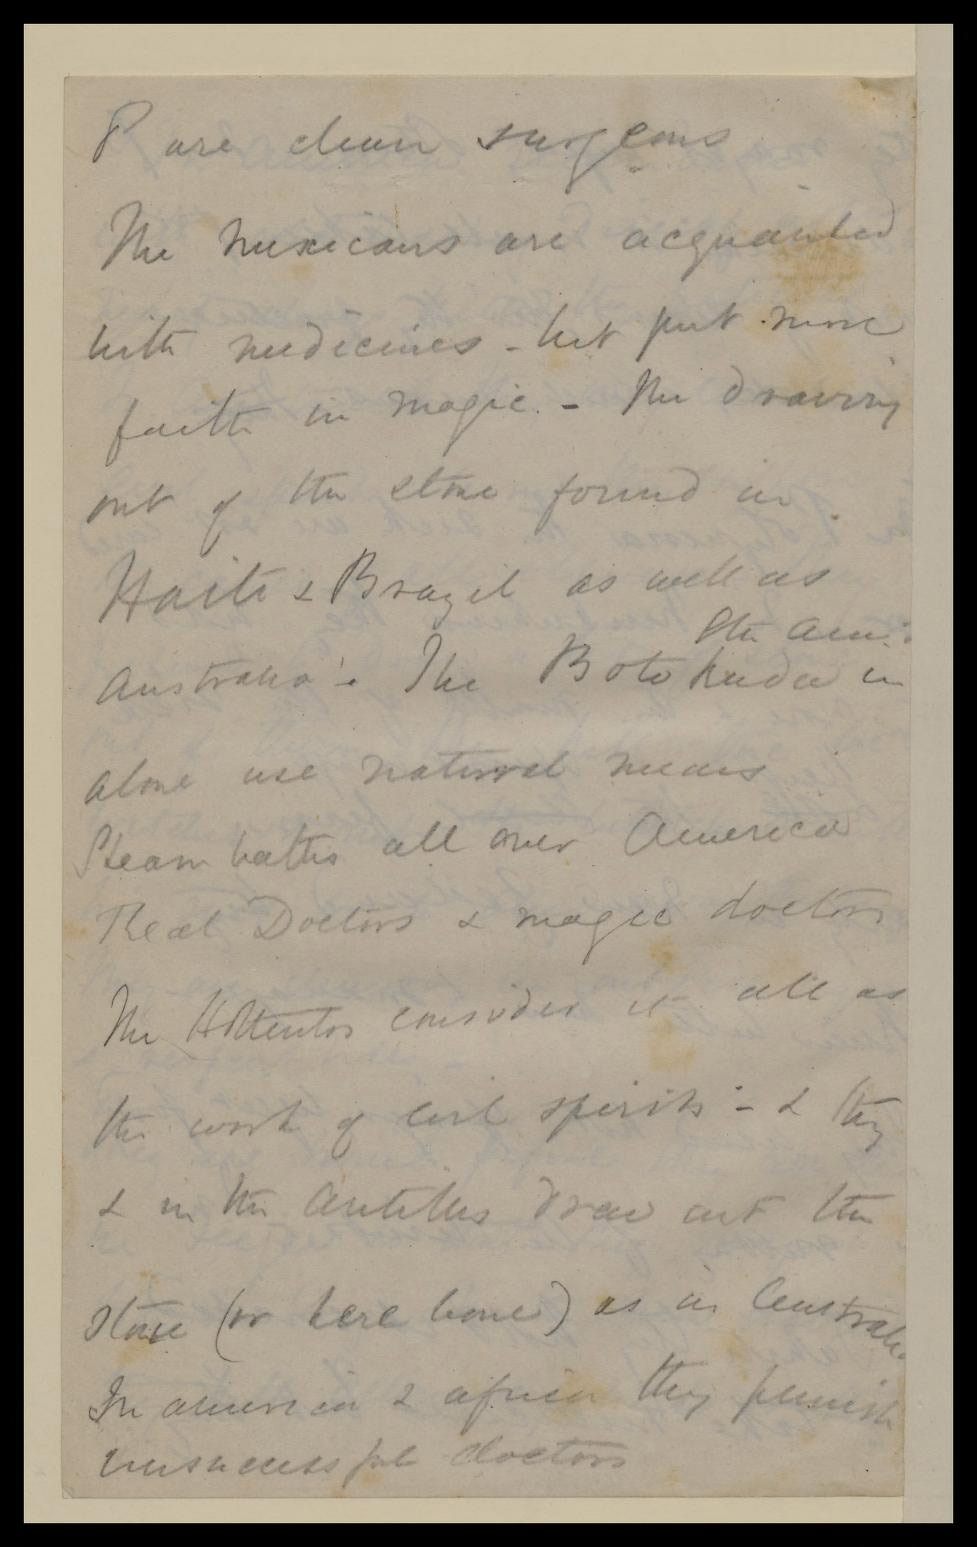 P are clean surgeons
The Mexicans are acquainted
with medicines - but put more
faith in magic. - The drawing
out of the stone found in
Haiti & Brazil as well as
Sth Am:
Australia. The Botokuda in
alone use natural means
Steam baths all over America
Real Doctors & magic doctors
The Hottentos consider it all as
the work of evil spirits - & they
& in the Antilles draw out the
stone (or here bone) as in Australia
In america & africa they punish
unsuccessful doctors